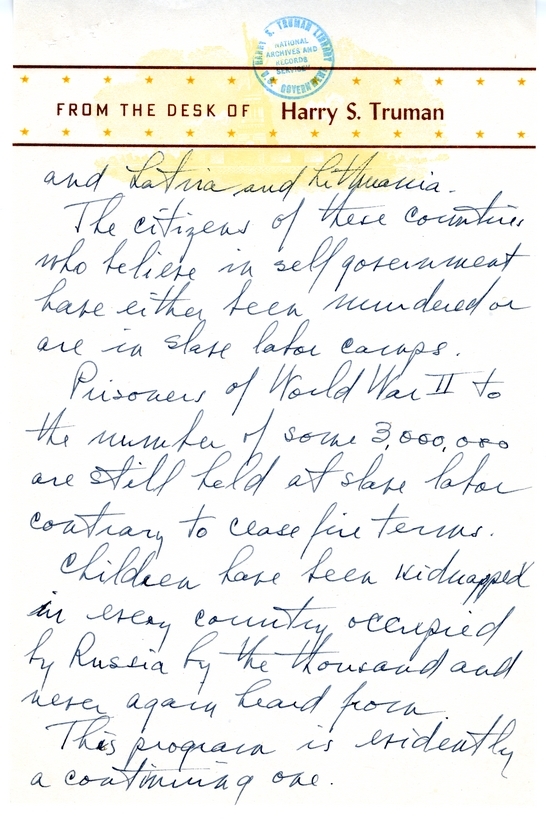 HARRY S. TRUMAN LIBRARY
NATIONAL
ARCHIVES AND
RECORDS
SERVICE
U.S. GOVERNMENT
FROM THE DESK OF Harry S. Truman
and Latvia and Lithuania.
The citizens of these countries
who believe in self government
have either been murdered or
are in slave labor camps.
Prisoners of World War II to
the number of some 3,000,000
are still held at slave labor
contrary to cease fire terms.
Children have been kidnapped
in every country occupied
by Russia by the thousand and
never again heard from
This program is evidently
a continuing one.